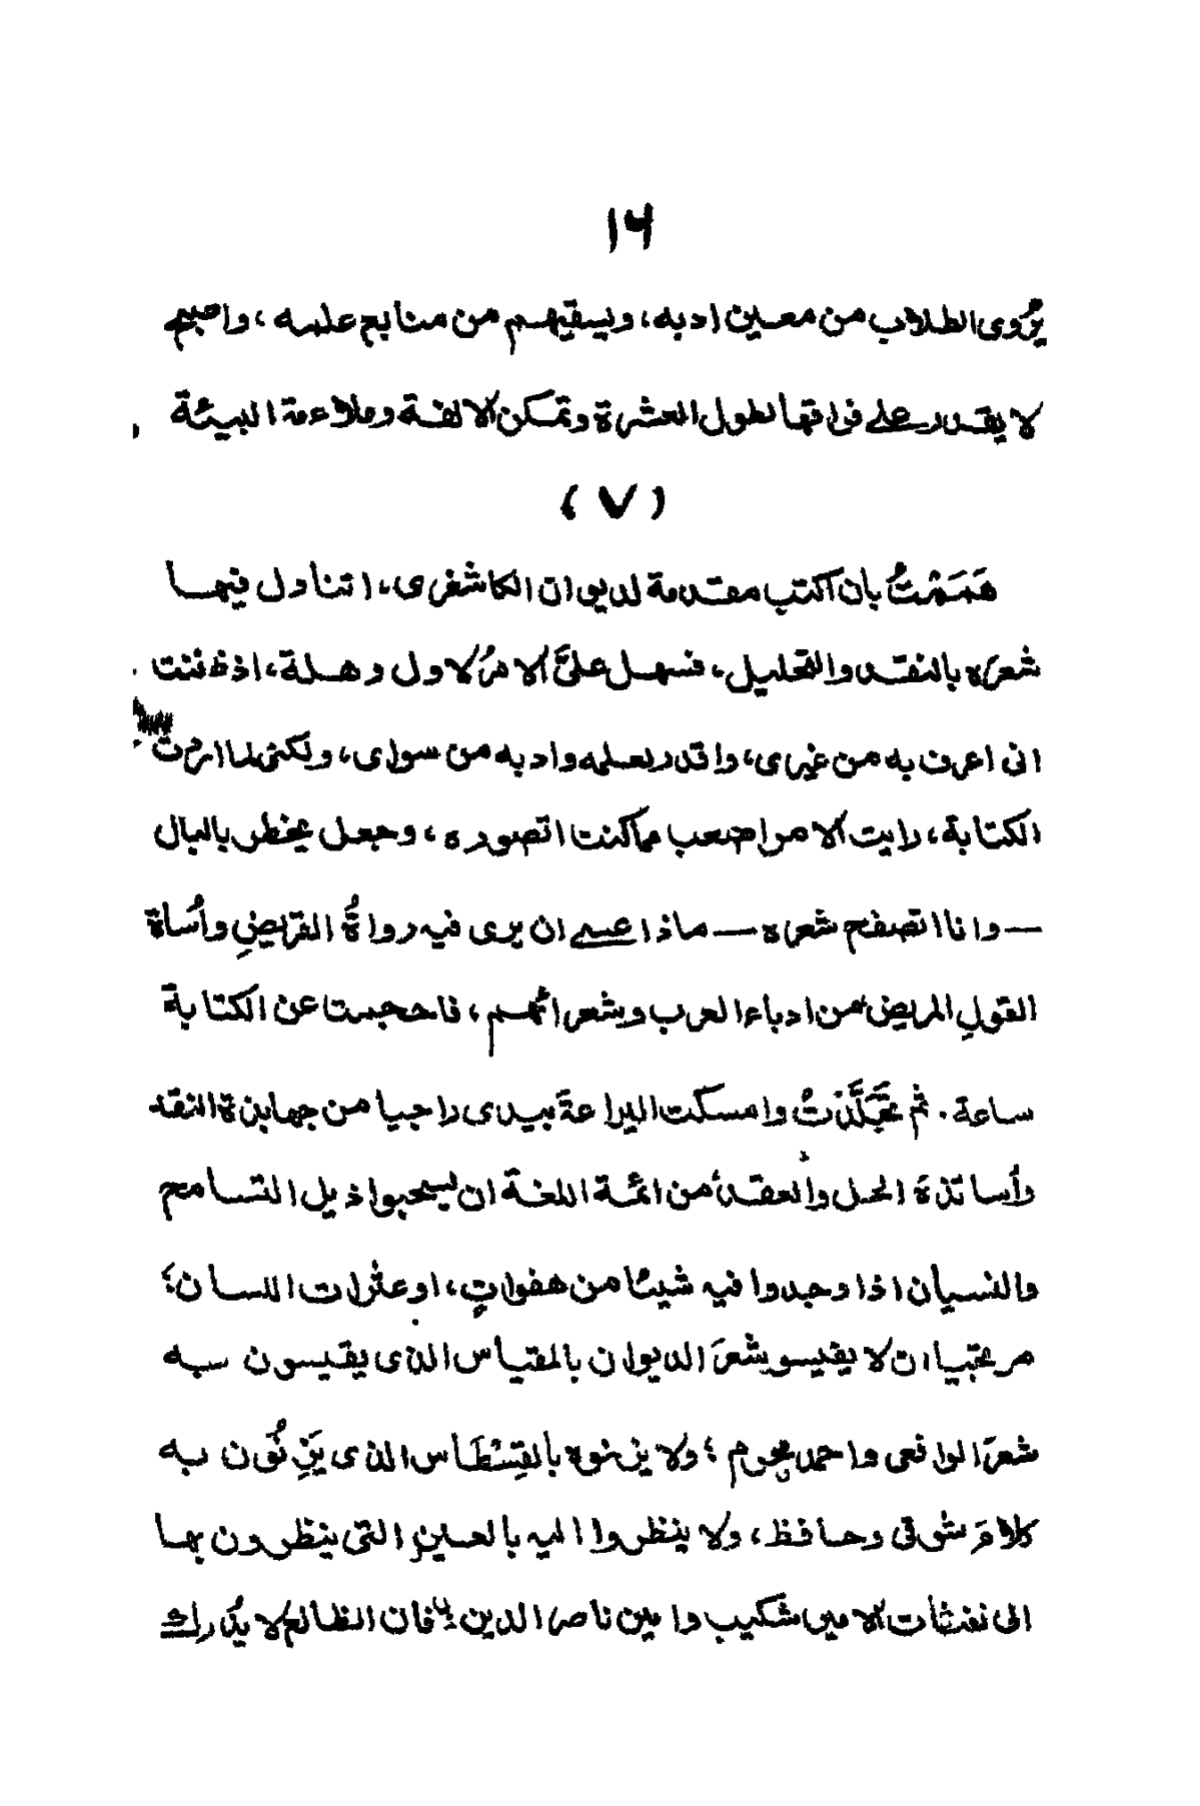 ١٦
يُرَوى الطلاب من معين ادبه، ويسقيهم من منابع علمه، واصبح
لا يقدر على فراقها لطول العشرة وتمكن الالفة وملاءمة البيئة
(٧)
هَمَمْتُ بان اكتب مقدمة لديوان الكاشغرى، اتناول فيها
شعره بالنقد والتحليل، فسهل علىَّ الامرُ لاول وهلة، اذ ظننت
انى اعرف به من غيرى، واقدر بعلمه وادبه من سواى، ولكنى لما اردت
الكتابة، رايت الامر اصعب مما كنت اتصوره، وجعل يخطر بالبال
— وانا اتصفح شعره — ماذا عسى ان يرى فيه رواةُ القريضِ وأُساة
القولِ المريض من ادباء العرب وشعرائهم، فاحجمت عن الكتابة
ساعة. ثم تَجَلَّدْتُ وامسكت اليراعةَ بيدى راجيا من جهابذة النقد
وأساتذة الحل والعقد من ائمة اللغة ان يسحبوا ذيل التسامح
والنسيان اذا وجدوا فيه شيئا من هفواتٍ، او عثرات اللسان؛
مرتجيا ان لا يقيسو شعرَ الديوان بالمقياس الذى يقيسون به
شعرَ الرافعى واحمد محرم؛ ولا يزنوه بالقِسْطَاس الذى يَزِنُون به
كلامَ شوقى وحافظ، ولا ينظروا اليه بالعينِ التى ينظرون بها
الى نفثات الامير شكيب وامين ناصر الدين فان الظالع لا يُدْرك